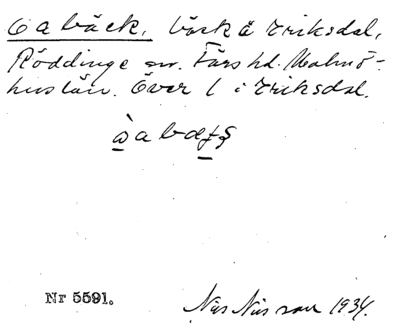 Oabäck. bäck å Eriksdal,
Röddinge sn. Färs hd. Malmö-
hus län. Över l i Eriksdal.
Nr 5591.
Nils Nilsson 1934.